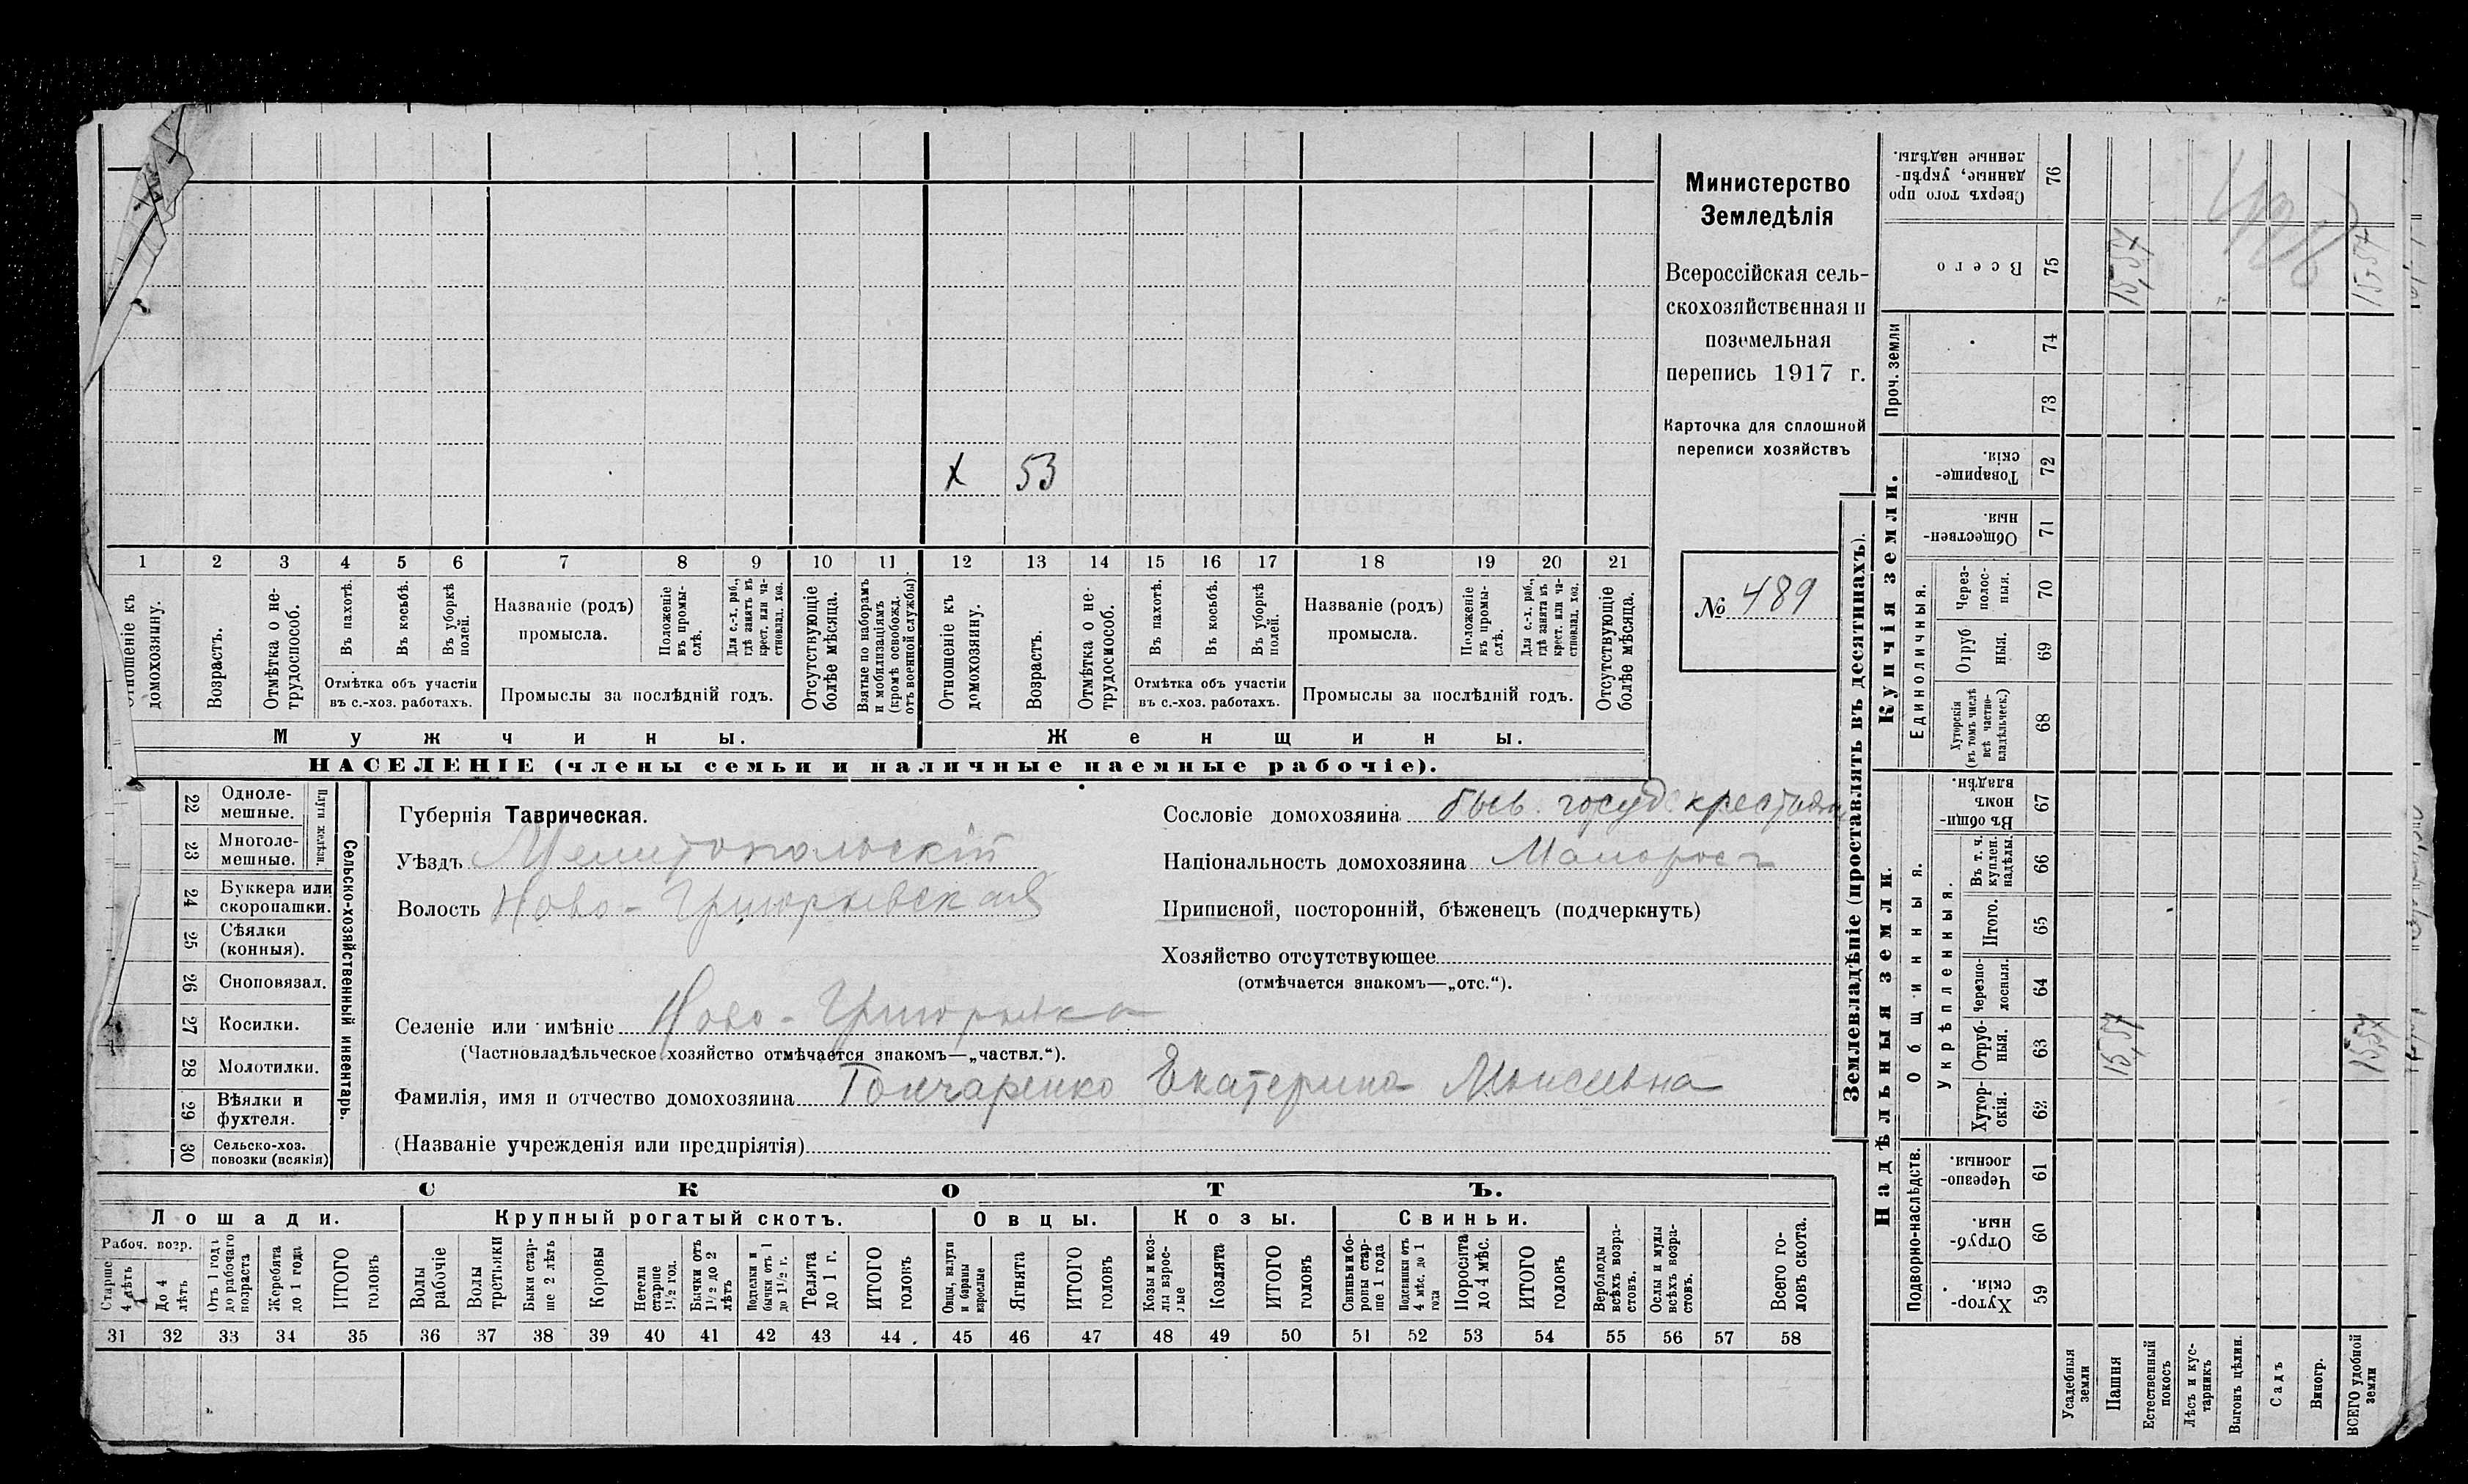 Министерство
Земледѣлія
Всероссійская сель-
скохозяйственная и
поземельная
перепись 1917 г.
Карточка для сплошной
переписи хозяйствъ
№ 489
х 53
1 2 3 4 5 6 7 8 9 10 11 12 13 14 15 16 17 18 19 20 21
Отношеніе къ домохозяину.
Возрастъ.
Отмѣтка о не-
трудоспособ.
Въ пахотѣ.
Въ косьбѣ.
Въ уборкѣ
полей.
Отмѣтка объ участіи
въ с.-хоз. работахъ.
Названіе (родъ)
промысла.
Положеніе
въ промы-
слѣ.
Для с.-х. раб.,
гдѣ занятъ въ
крест. или ча-
стновлад. хоз.
Промыслы за послѣдній годъ.
Отсутствующіе
болѣе мѣсяца.
Взятые по наборамъ
и мобилизаціямъ
(кромѣ освобожд.
отъ военной службы).
Отношеніе къ
домохозяину.
Возрастъ.
Отмѣтка о не-
трудоспособ.
Въ пахотѣ.
Въ косьбѣ.
Въ уборкѣ
полей.
Отмѣтка объ участіи
въ с.-хоз. работахъ.
Названіе (родъ)
промысла.
Положеніе
въ промы-
слѣ.
Для с.-х. раб.,
гдѣ занята въ
крест. или ча-
стновлад. хоз.
Промыслы за послѣдній годъ.
Отсутствующіе
болѣе мѣсяца.
Мужчины. Женщины.
НАСЕЛЕНІЕ (члены семьи и наличные наемные рабочіе).
22 Одноле-
мешные.
23 Многоле-
мешные.
Плуги желѣзн.
24 Буккера или
скоропашки.
25 Сѣялки
(конныя).
26 Сноповязал.
27 Косилки.
28 Молотилки.
29 Вѣялки и
фухтеля.
30 Сельско-хоз.
повозки (всякія)
Сельско-хозяйственный инвентарь.
Губернія Таврическая.
Уѣздъ Мелитопольскій
Волость Ново-Григорьевская
Селеніе или имѣніе Ново-Григорьевка
(Частновладѣльческое хозяйство отмѣчается знакомъ—„частвл.“).
Фамилія, имя и отчество домохозяина Гончаренко Екатерина Моисеевна
(Названіе учрежденія или предпріятія)
Сословіе домохозяина быв. госуд. крестьян.
Національность домохозяина Малоросъ
Приписной, посторонній, бѣженецъ (подчеркнуть)
Хозяйство отсутствующее
(отмѣчается знакомъ—„отс.“).
СКОТЪ.
Лошади. Крупный рогатый скотъ. Овцы. Козы. Свиньи.
Рабоч. возр.
Старше
4 лѣтъ
До 4
лѣтъ
Отъ 1 года
до рабочаго
возраста
Жеребята
до 1 года
ИТОГО
головъ
Волы
рабочіе
Волы
третьяки
Быки стар-
ше 2 лѣтъ
Коровы
Нетели
старше
1½ год.
Бычки отъ
1½ до 2
лѣтъ
Подтелки и
бычки отъ 1
до 1½ г.
Телята
до 1 г.
ИТОГО
головъ
Овцы, валухи
и бараны
взрослые
Ягнята
ИТОГО
головъ
Козы и коз-
лы взрос-
лые
Козлята
ИТОГО
головъ
Свиньи и бо-
ровы стар-
ше 1 года
Подсвинки отъ
4 мѣс. до 1
года
Поросята
до 4 мѣс.
ИТОГО
головъ
Верблюды
всѣхъ возра-
стовъ.
Ослы и мулы
всѣхъ возра-
стовъ.
Всего го-
ловъ скота.
31 32 33 34 35 36 37 38 39 40 41 42 43 44 45 46 47 48 49 50 51 52 53 54 55 56 57 58
Землевладѣніе (проставлять въ десятинахъ).
Надѣльныя земли. Купчія земли. Проч. земли
Подворно-наслѣдств.
Общинныя.
Укрѣпленныя.
Единоличныя.
Сверхъ того про
данные, укрѣп-
ленные надѣлы. 76
Всего 75 15,57 15,57
74
73
Товарище-
скія. 72
Обществен-
ныя. 71
Через-
полос-
ныя. 70
Отруб
ныя. 69
Хуторскія
(въ томъ числѣ
всѣ частно-
владѣльческ.) 68
Въ общи
номъ
владѣн. 67
Въ т. ч.
куплен.
надѣлы. 66
Итого. 65
Черезпо-
лосныя. 64
Отруб-
ныя. 63 15,57 15,57
Хутор-
скія. 62
Черезпо-
лосныя. 61
Отруб-
ныя. 60
Хутор-
скія. 59
Усадебныя
земли
Пашня
Естественный
покосъ
Лѣсъ и кус-
тарникъ
Выгонъ цѣлин.
Садъ
Виногр.
ВСЕГО удобной
земли